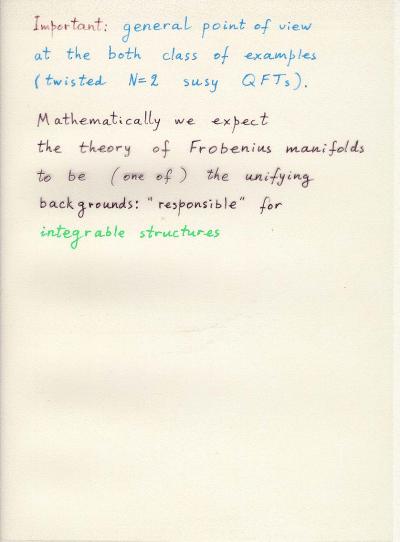 Important: general point of view
at the both class of examples
(twisted N=2 susy QFTs).
Mathematically we expect
the theory of Frobenius manifolds
to be (one of) the unifying
backgrounds: "responsible" for
integrable structures